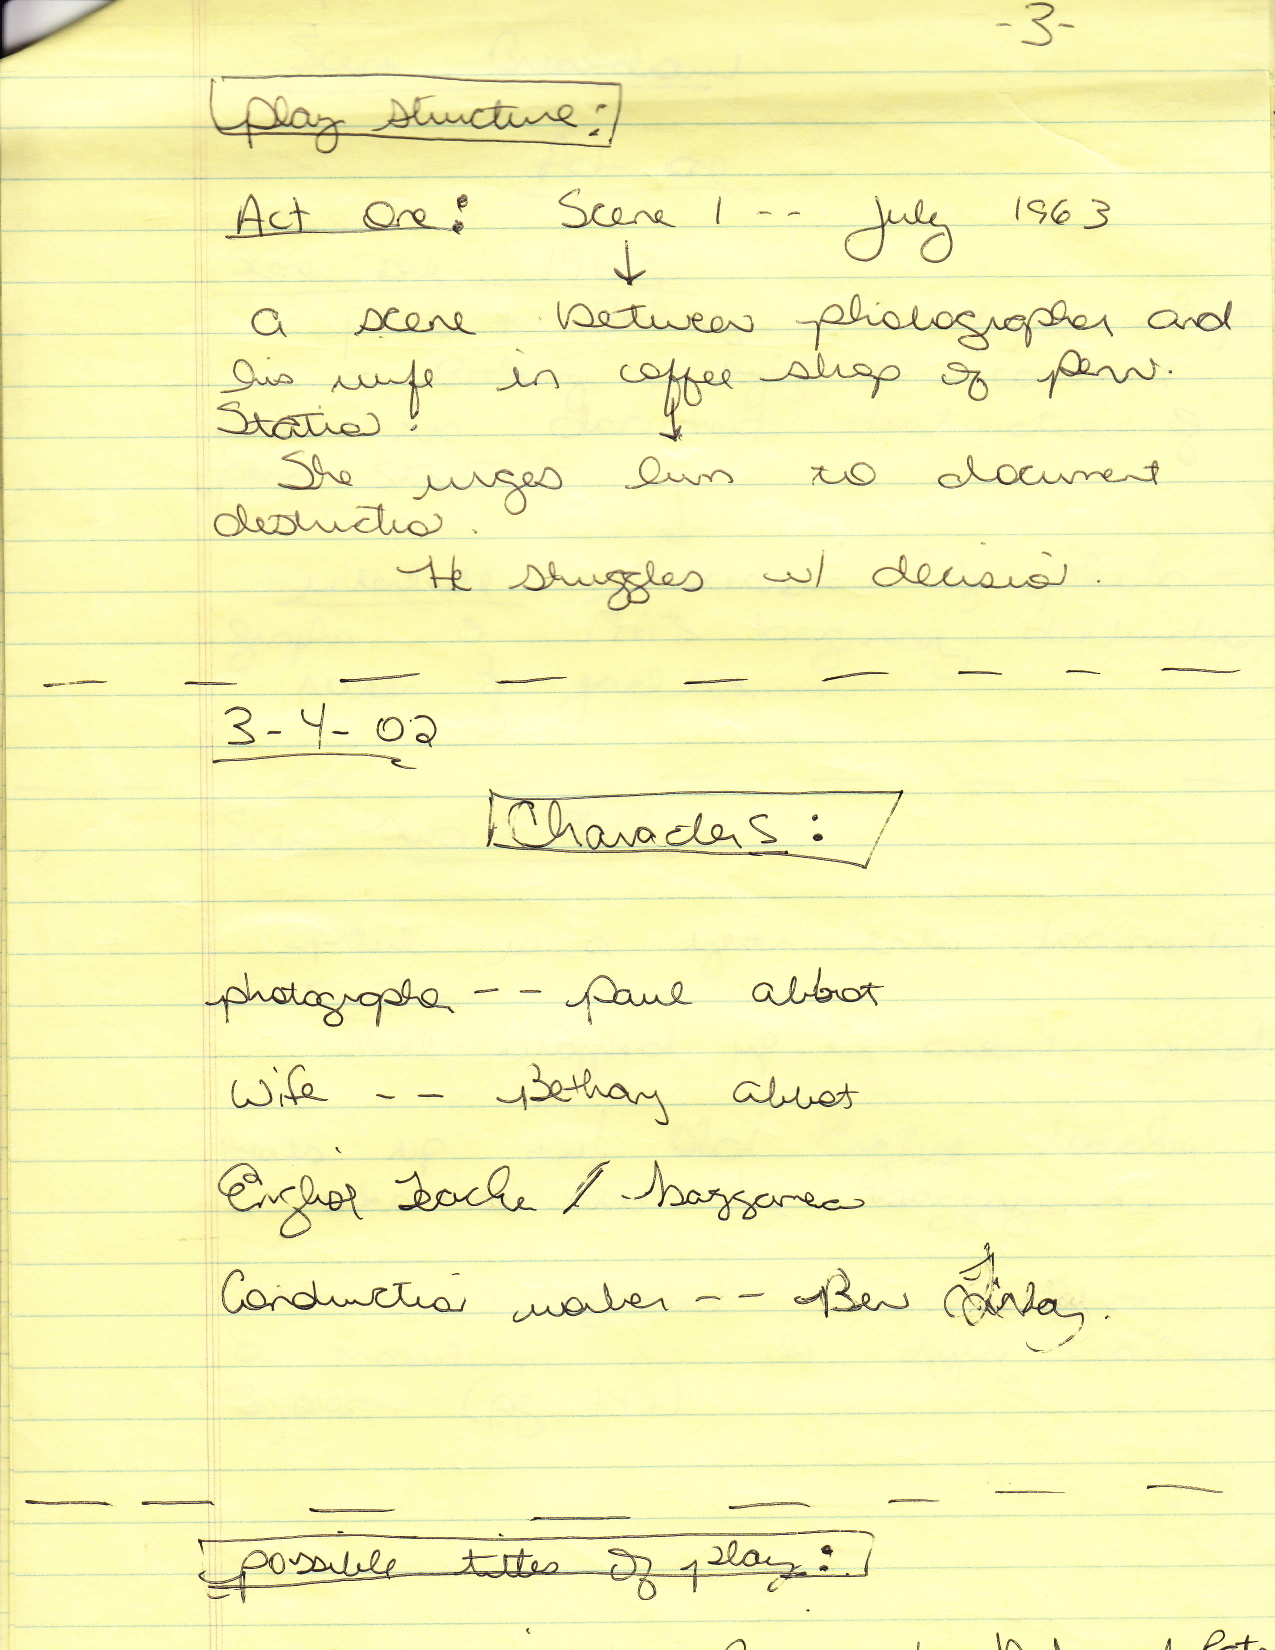 -3-
play structure:
Act One: Scene 1 -- July 1963
a scene between photographer and
his wife in coffee shop of Penn.
Station:
She urges him to document
destruction.
He struggles w/ decision.
3-4-02
Characters:
photographer -- Paul Abbot
Wife -- Bethany Abbot
English Teacher /
Construction worker -- Ben
possible titles of play: